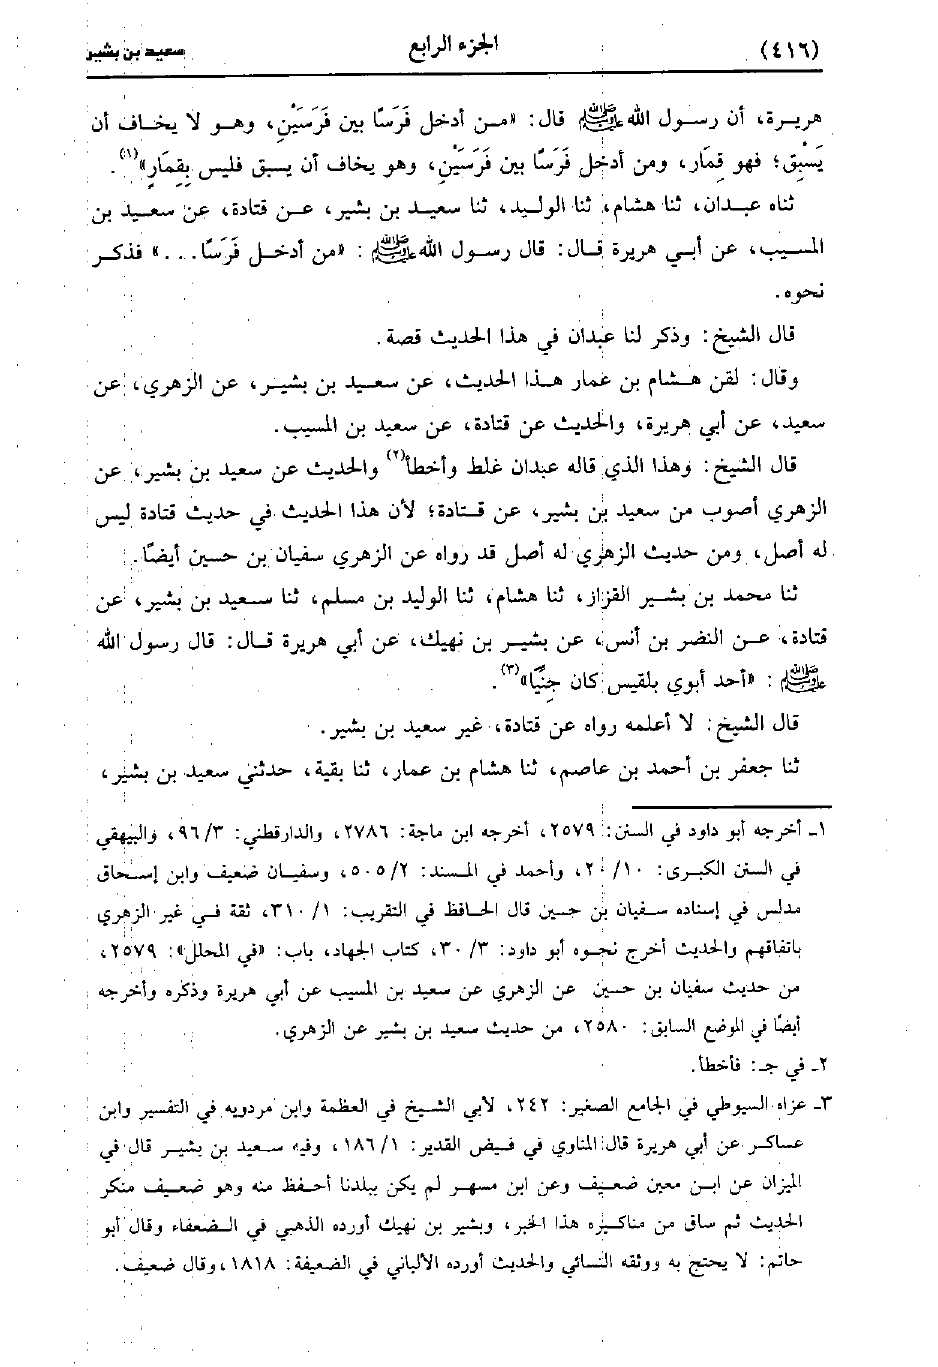 (٤١٦) الجزء الرابع سعيد بن بشير
هريرة، أن رسول الله ﷺ قال: «من أدخل فَرَسًا بين فَرَسَيْنِ، وهو لا يخاف أن
يَسْبِق؛ فهو قِمَار، ومن أدخل فَرَسًا بين فَرَسَيْنِ، وهو يخاف أن يسبق فليس بِقِمَارٍ»(١).
ثناه عبدان، ثنا هشام، ثنا الوليد، ثنا سعيد بن بشير، عن قتادة، عن سعيد بن
المسيب، عن أبي هريرة قال: قال رسول الله ﷺ: «من أدخل فَرَسًا...» فذكر
نحوه.
قال الشيخ: وذكر لنا عبدان في هذا الحديث قصة.
وقال: لقن هشام بن عمار هذا الحديث، عن سعيد بن بشير، عن الزهري، عن
سعيد، عن أبي هريرة، والحديث عن قتادة، عن سعيد بن المسيب.
قال الشيخ: وهذا الذي قاله عبدان غلط وأخطأ(٢) والحديث عن سعيد بن بشير، عن
الزهري أصوب من سعيد بن بشير، عن قتادة؛ لأن هذا الحديث في حديث قتادة ليس
له أصل، ومن حديث الزهري له أصل قد رواه عن الزهري سفيان بن حسين أيضًا.
ثنا محمد بن بشير القزاز، ثنا هشام، ثنا الوليد بن مسلم، ثنا سعيد بن بشير، عن
قتادة، عن النضر بن أنس، عن بشير بن نهيك، عن أبي هريرة قال: قال رسول الله
ﷺ: «أحد أبوي بلقيس كان جِنِّيًا»(٣).
قال الشيخ: لا أعلمه رواه عن قتادة، غير سعيد بن بشير.
ثنا جعفر بن أحمد بن عاصم، ثنا هشام بن عمار، ثنا بقية، حدثني سعيد بن بشير،
١ـ أخرجه أبو داود في السنن: ٢٥٧٩، أخرجه ابن ماجة: ٢٧٨٦، والدارقطني: ٩٦/٣، والبيهقي
في السنن الكبرى: ٢٠/١٠، وأحمد في المسند: ٥٠٥/٢، وسفيان ضعيف وابن إسحاق
مدلس في إسناده سفيان بن حسين قال الحافظ في التقريب: ٣١٠/١، ثقة في غير الزهري
باتفاقهم والحديث أخرج نحوه أبو داود: ٣٠/٣، كتاب الجهاد، باب: «في المحلل»: ٢٥٧٩،
من حديث سفيان بن حسين عن الزهري عن سعيد بن المسيب عن أبي هريرة وذكره وأخرجه
أيضًا في الموضع السابق: ٢٥٨٠، من حديث سعيد بن بشير عن الزهري.
٢ـ في جـ: فأخطأ.
٣ـ عزاه السيوطي في الجامع الصغير: ٢٤٢، لأبي الشيخ في العظمة وابن مردويه في التفسير وابن
عساكر عن أبي هريرة قال المناوي في فيض القدير: ١٨٦/١، وفيه سعيد بن بشير قال في
الميزان عن ابن معين ضعيف وعن ابن مسهر لم يكن ببلدنا أحفظ منه وهو ضعيف منكر
الحديث ثم ساق من مناكيره هذا الخبر، وبشير بن نهيك أورده الذهبي في الضعفاء وقال أبو
حاتم: لا يحتج به ووثقه النسائي والحديث أورده الألباني في الضعيفة: ١٨١٨، وقال ضعيف.